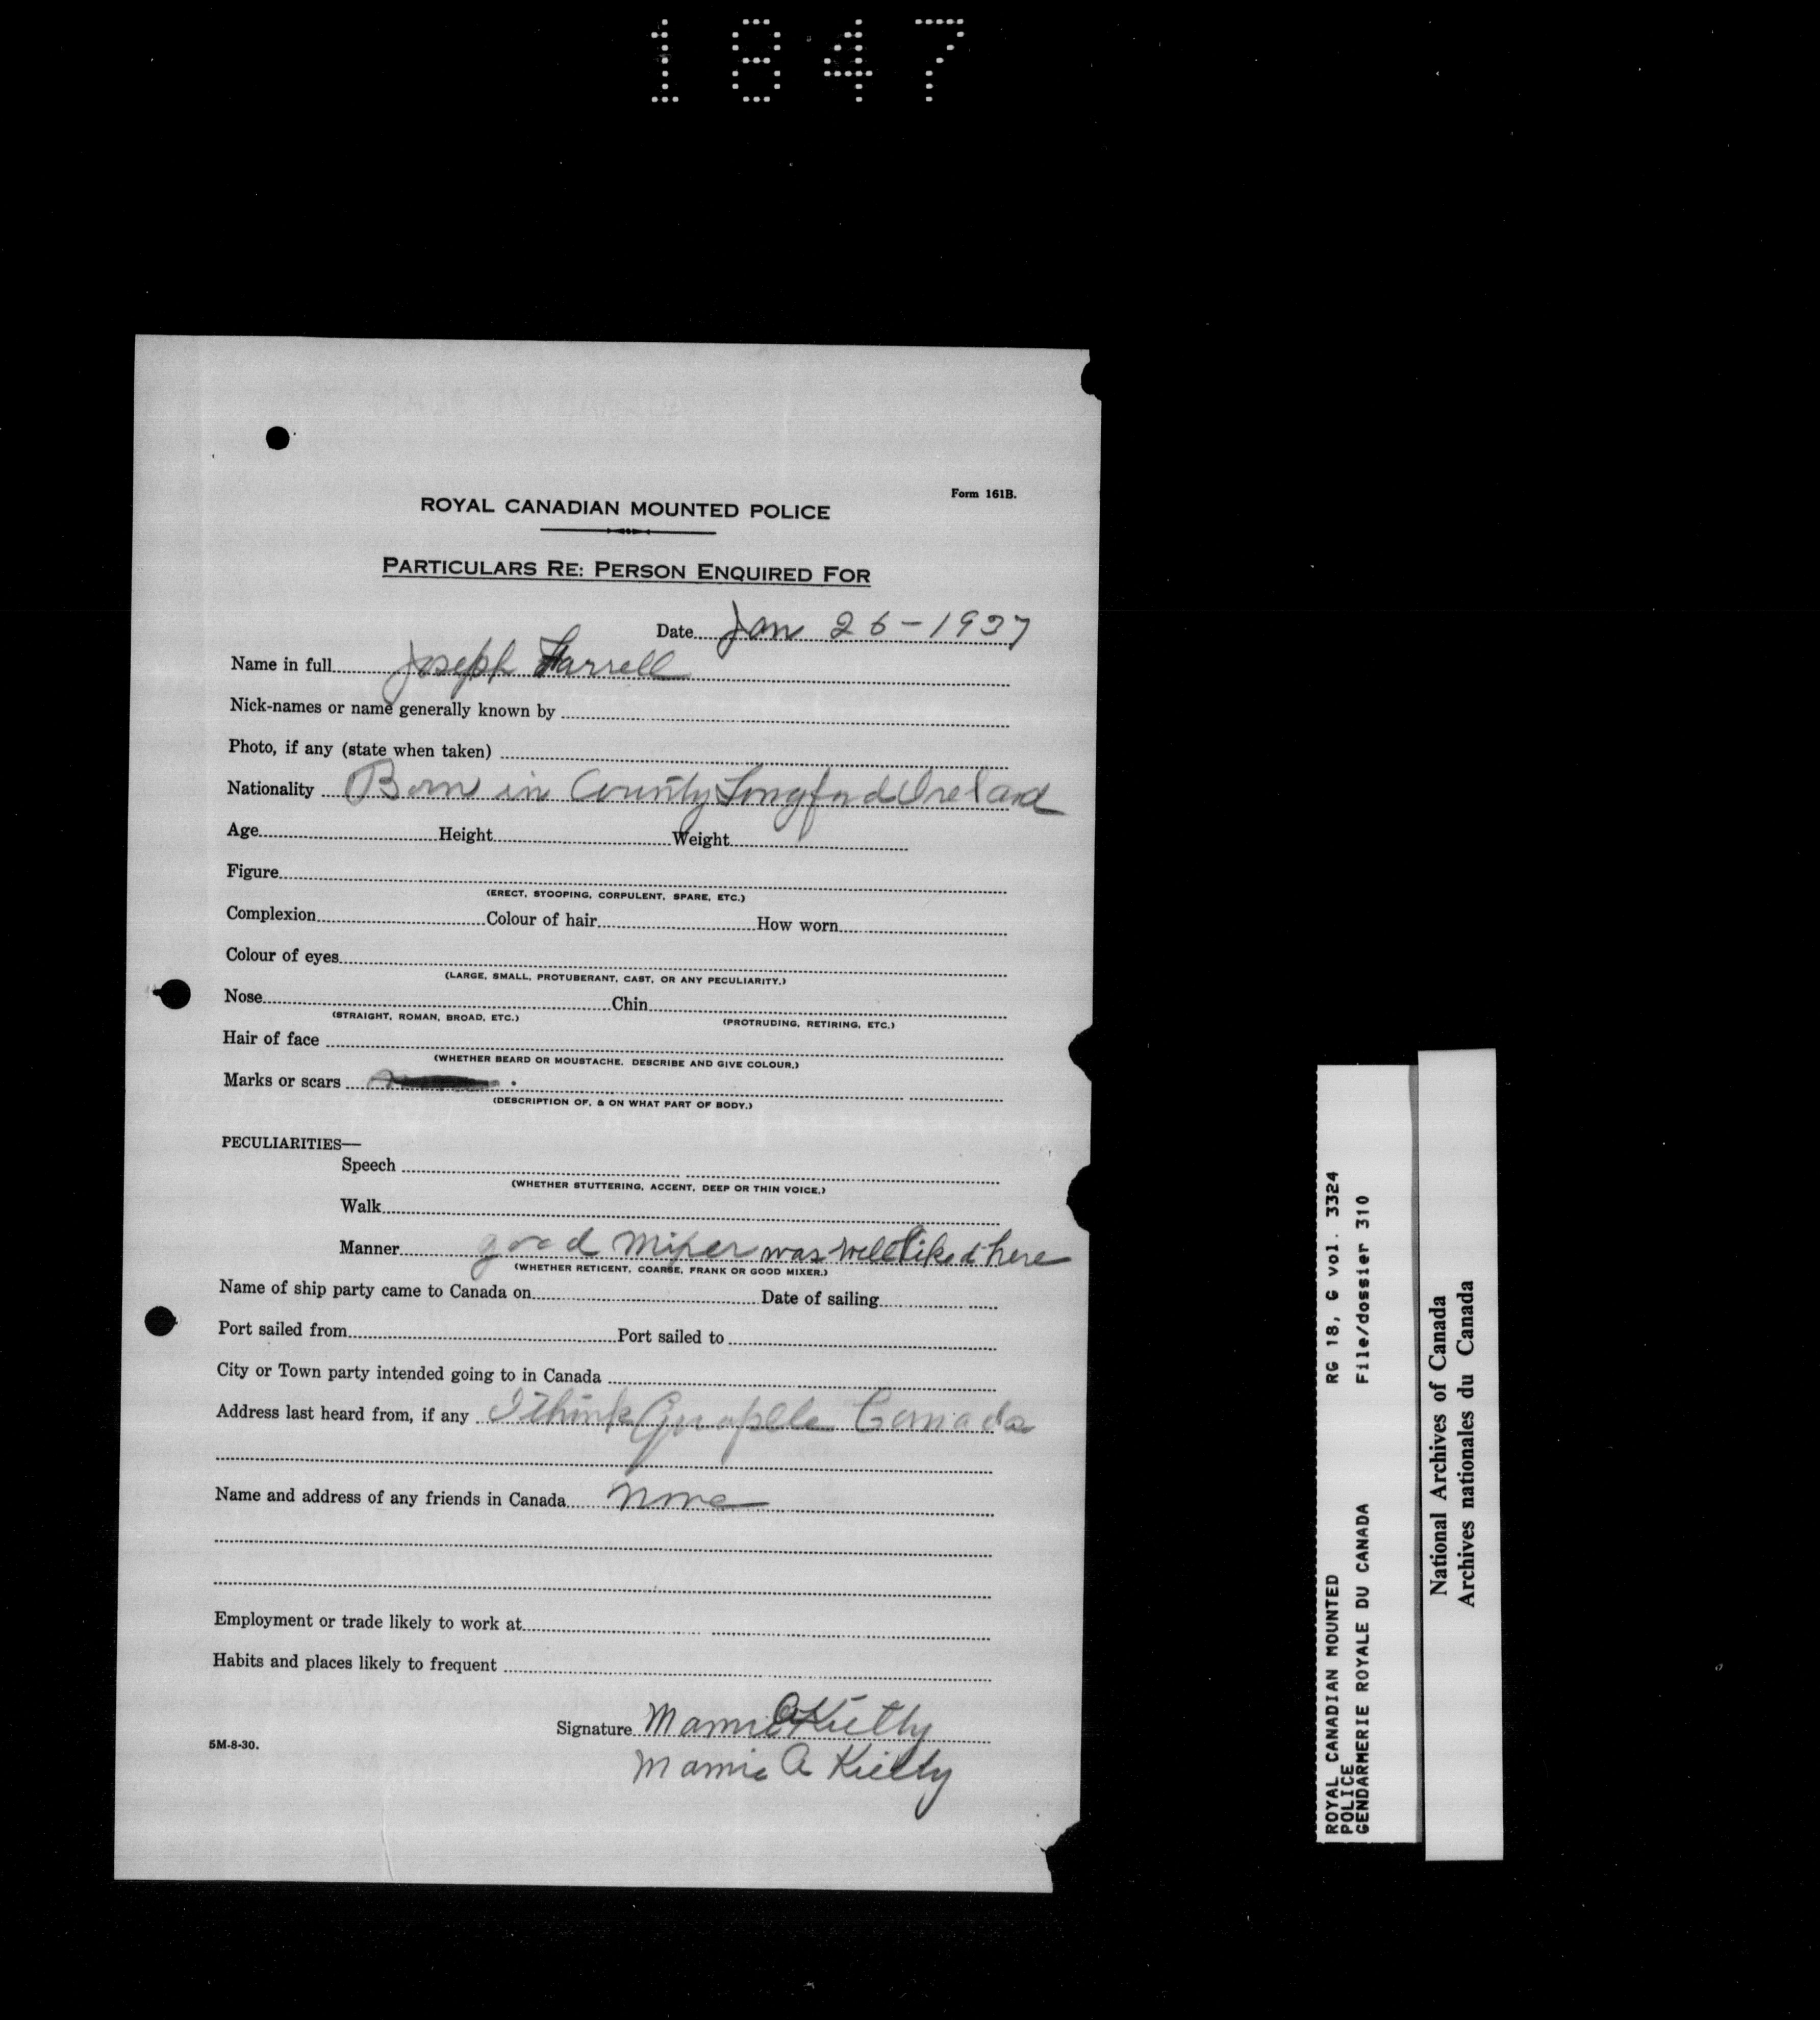 1847
Form 161B.
ROYAL CANADIAN MOUNTED POLICE
PARTICULARS RE: PERSON ENQUIRED FOR
Date Jan 26-1937
Name in full Joseph Farrell
Nick-names or name generally known by
Photo, if any (state when taken)
Nationality Born in County Longford Ireland
Age Height Weight
Figure
(ERECT, STOOPING, CORPULENT, SPARE, ETC.)
Complexion Colour of hair How worn
Colour of eyes
(LARGE, SMALL, PROTUBERANT, CAST, OR ANY PECULIARITY.)
Nose Chin
(STRAIGHT, ROMAN, BROAD, ETC.) (PROTRUDING, RETIRING, ETC.)
Hair of face
(WHETHER BEARD OR MOUSTACHE. DESCRIBE AND GIVE COLOUR.)
Marks or scars
(DESCRIPTION OF, & ON WHAT PART OF BODY.)
PECULIARITIES—
Speech
(WHETHER STUTTERING, ACCENT, DEEP OR THIN VOICE.)
Walk
Manner good mixer was well liked here
(WHETHER RETICENT, COARSE, FRANK OR GOOD MIXER.)
Name of ship party came to Canada on Date of sailing
Port sailed from Port sailed to
City or Town party intended going to in Canada
Address last heard from, if any I think Canada
Name and address of any friends in Canada None
Employment or trade likely to work at
Habits and places likely to frequent
Signature Mamie A Kielty
Mamie A Kielty
5M-8-30.
ROYAL CANADIAN MOUNTED RG 18, G vol. 3324
POLICE
GENDARMERIE ROYALE DU CANADA File/dossier 310
National Archives of Canada
Archives nationales du Canada